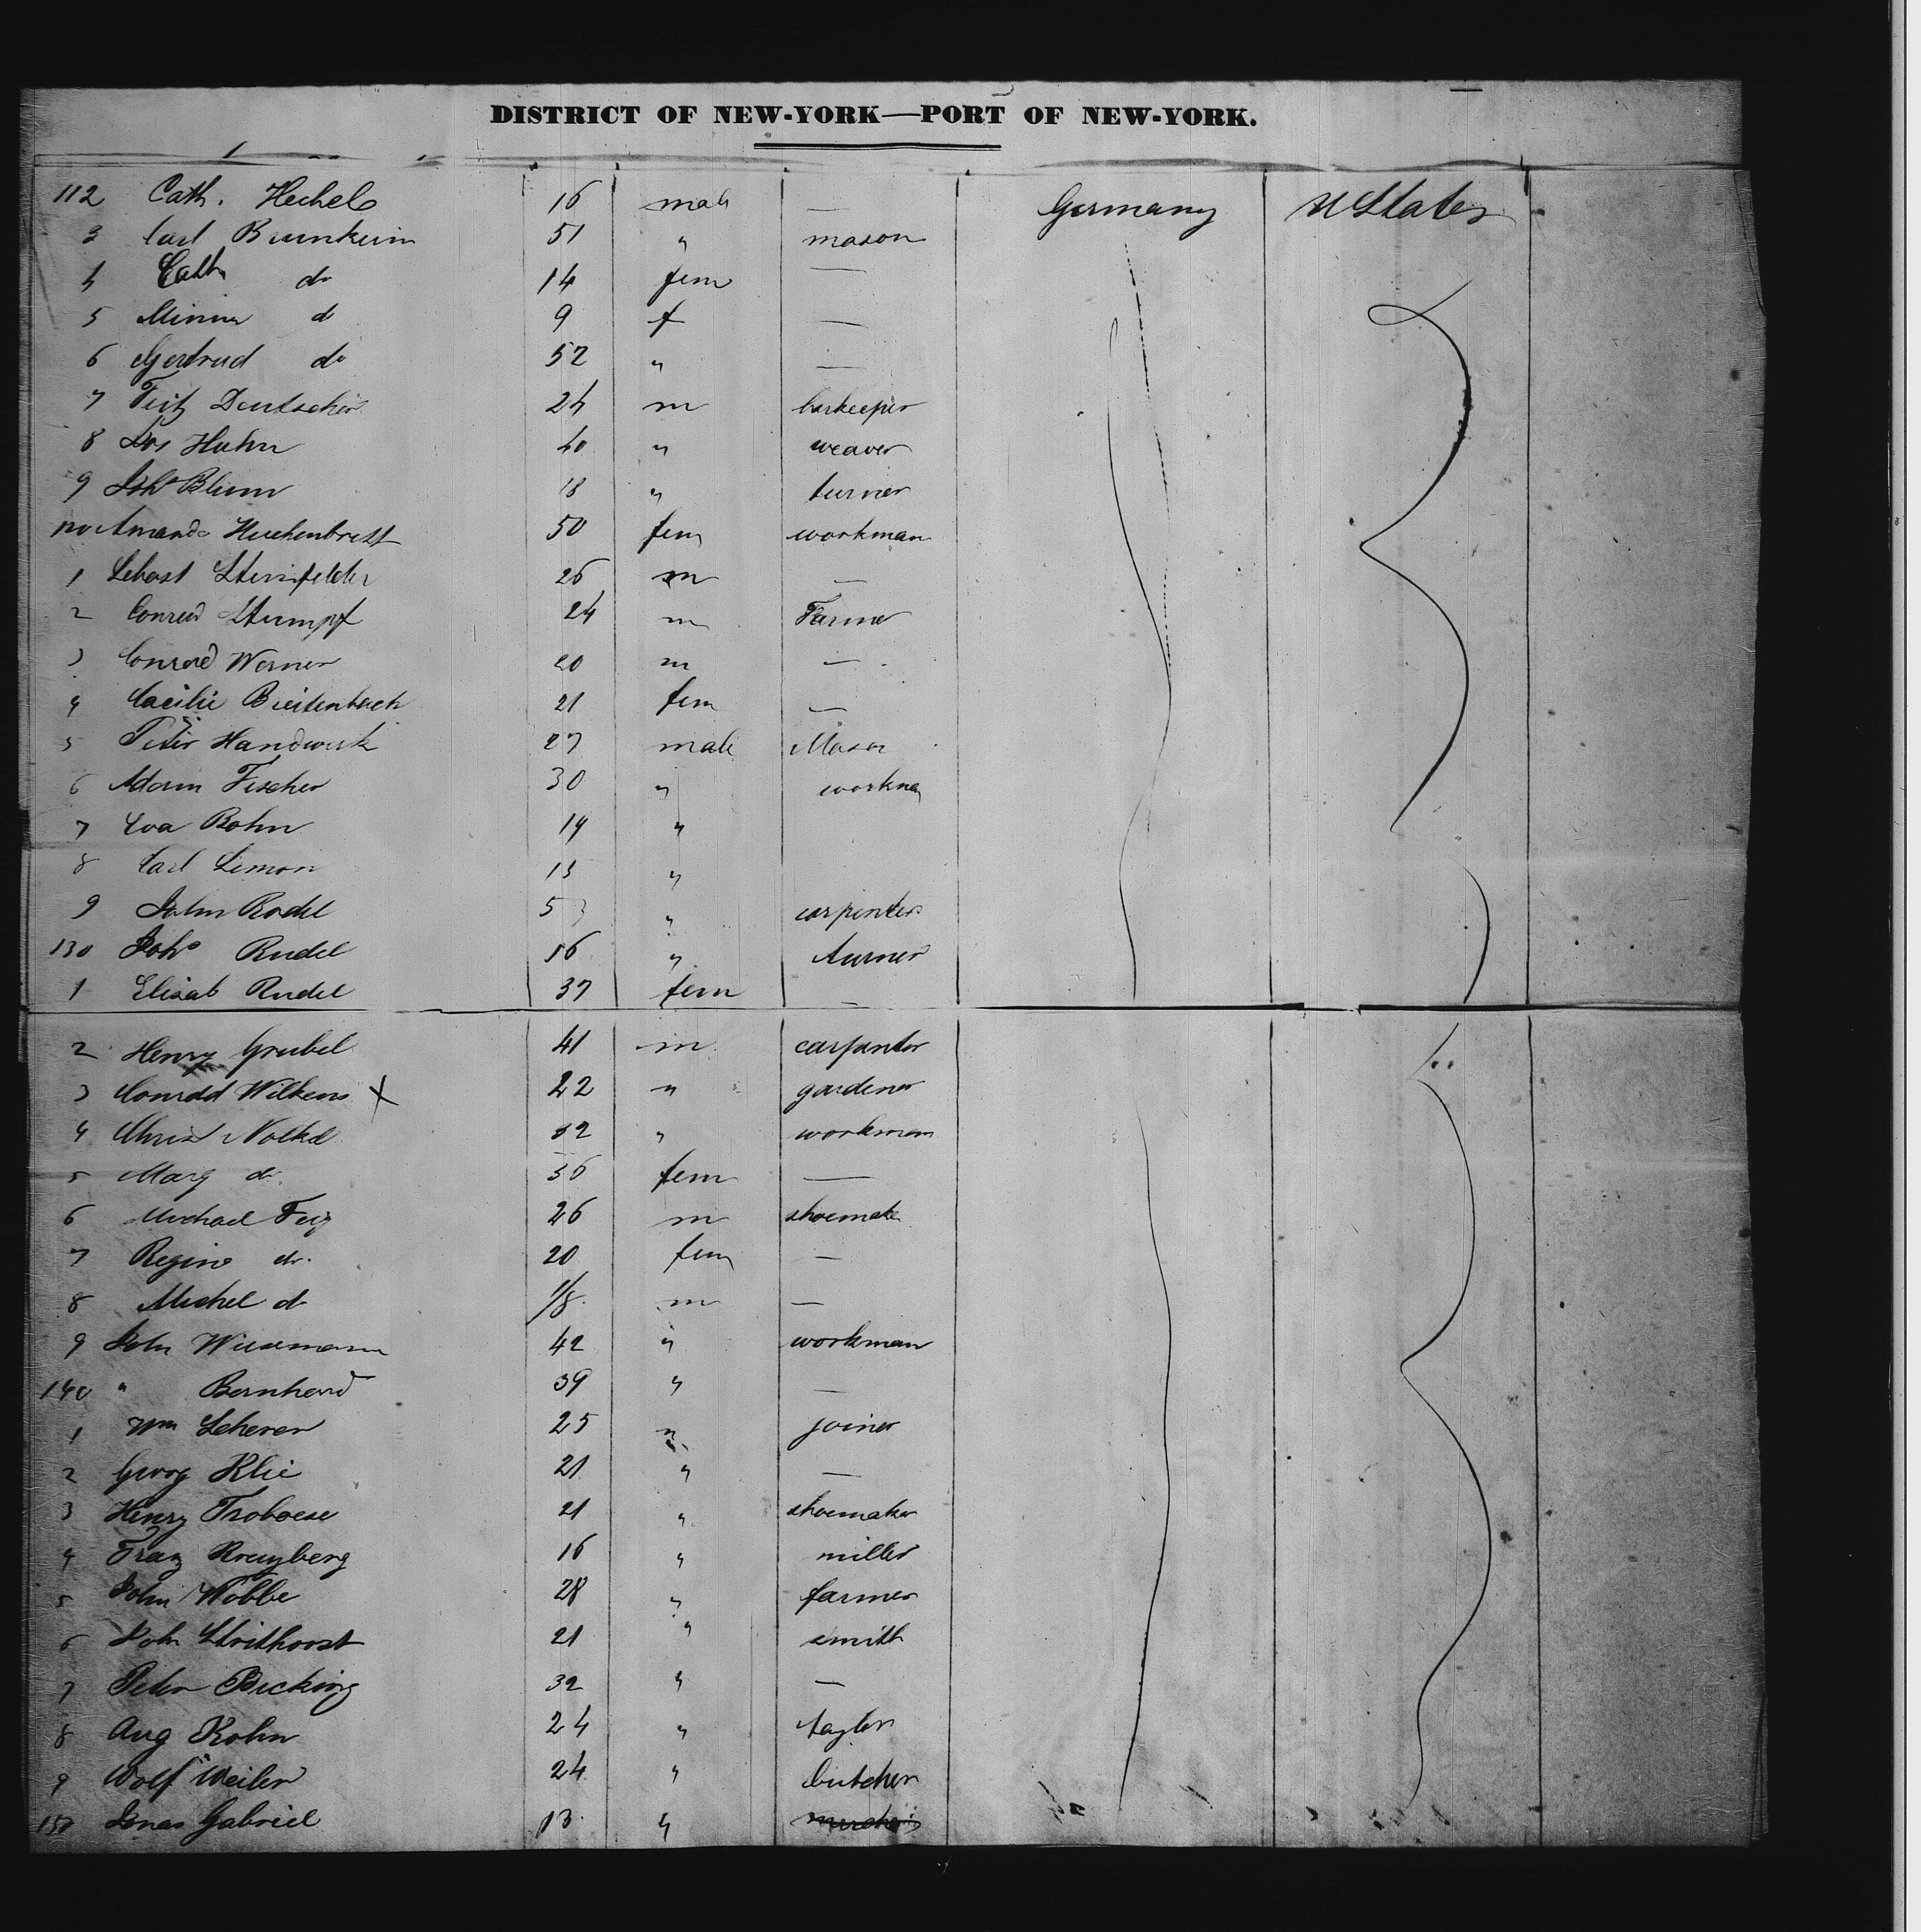 DISTRICT OF NEW-YORK—PORT OF NEW-YORK.
112 Cath. Hechel 16 male — Germany U States
3 Carl Brunkein 51 " mason
4 Cath do 14 fem —
5 Minna do 9 f —
6 Gertrud do 52 " —
7 Fritz Deutscher 24 m barkeeper
8 Jos Huhn 40 " weaver
9 Joh Blum 18 " turner
120 Amanda 50 fem workman
1 Sebast Steinfelder 26 m —
2 Conrad Stumpf 24 m Farmer
3 Conrad Werner 20 m —
4 Cacilie Breitenbach 21 fem —
5 Peter Handwerk 27 male Mason
6 Adam Fischer 30 " workman
7 Eva Rohn 19 "
8 Carl Simon 15 "
9 John Rodel 5 " carpenter
130 Joho Rudel 16 " turner
1 Elisab Rudel 37 fem —
2 Henry Grubel 41 m carpenter
3 Conrad Wilkens X 22 " gardener
4 Christ Nolkel 32 " workman
5 Marg do 36 fem —
6 Michael Feig 26 m shoemaker
7 Regina do. 20 fem —
8 Michel do 1/8 m —
9 John Wiesemann 42 " workman
140 " Bernhard 39 " —
1 Wm Scherer 25 " joiner
2 Georg Klie 21 " —
3 Henry Troboese 21 " shoemaker
4 Franz Kreuzberg 16 " miller
5 John Wobbe 28 " farmer
6 Joh Strithorst 21 " smith
7 Peter Bicking 32 " —
8 Aug Kohn 24 " taylor
9 Wolf Weiler 24 " butcher
150 Jonas Gabriel 13 "